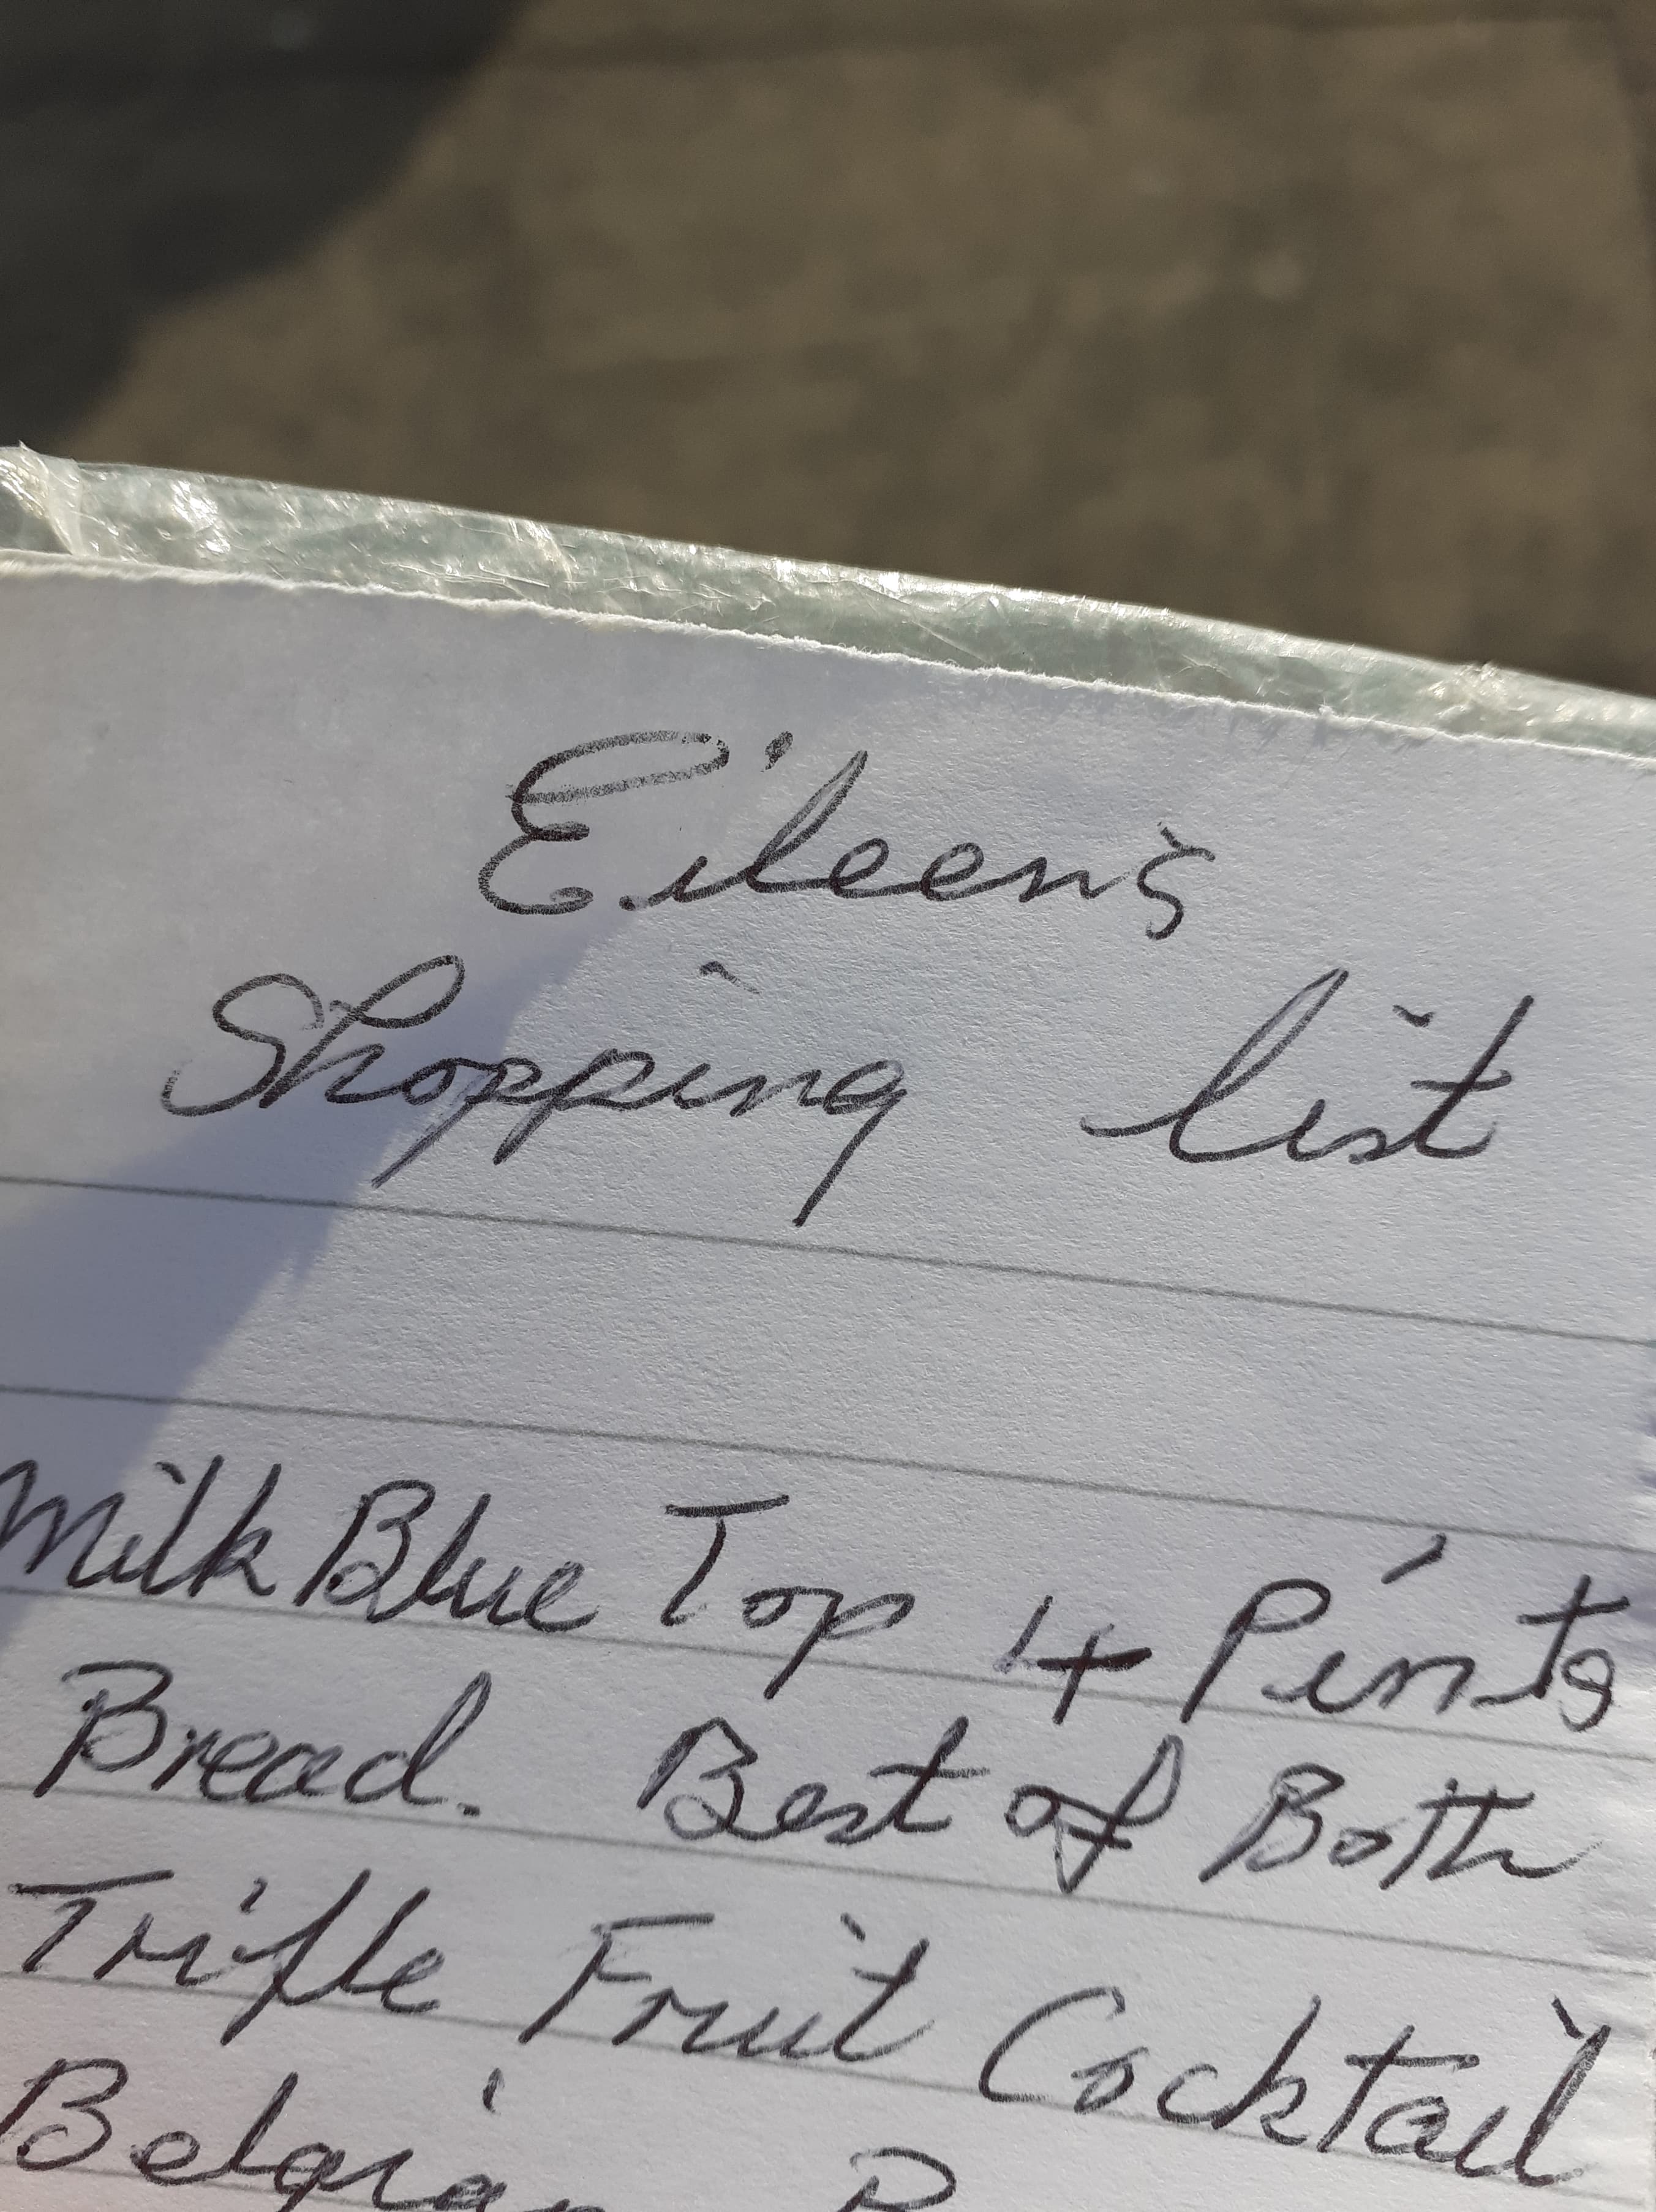 Eileen's
Shopping list
Milk Blue Top 4 Pints
Bread. Best of Both
Trifle Fruit Cocktail
Belgian